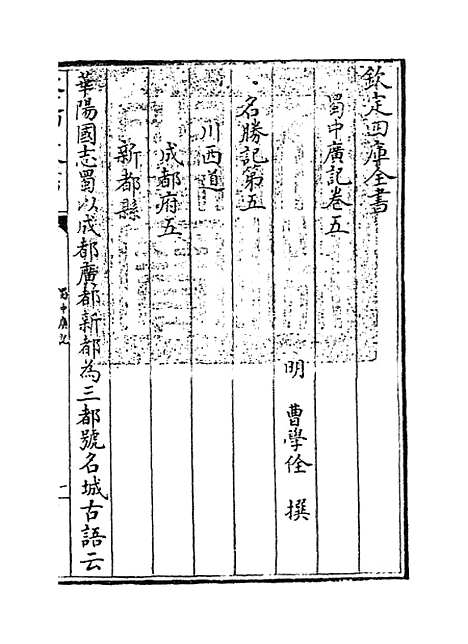 欽定四庫全書
蜀中廣記卷五
明　曹學佺　撰
名勝記第五
川西道
成都府五
新都縣
華陽國志蜀以成都廣都新都為三都號名城古語云
蜀中廣記